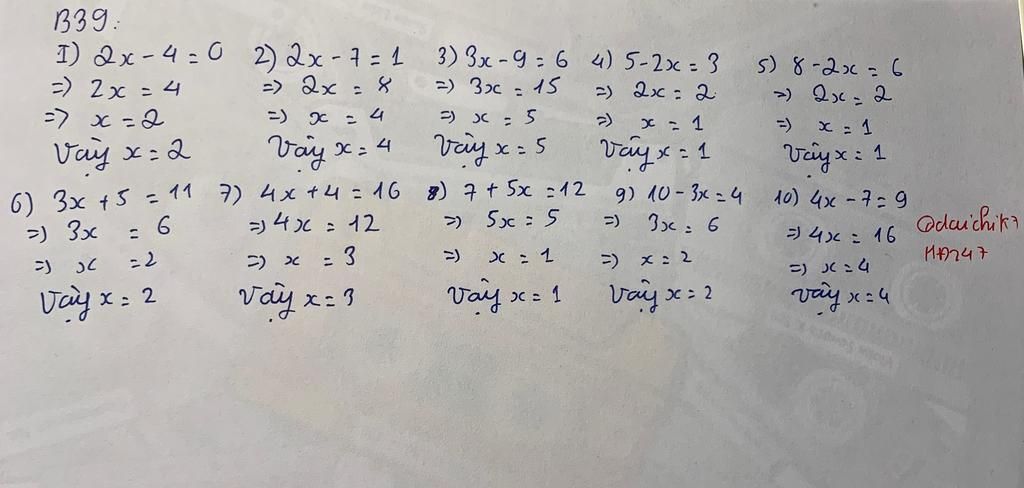 B39:
1) 2x - 4 = 0 2) 2x - 7 = 1 3) 3x - 9 = 6 4) 5 - 2x = 3 5) 8 - 2x = 6
=> 2x = 4 => 2x = 8 => 3x = 15 => 2x = 2 => 2x = 2
=> x = 2 => x = 4 => x = 5 => x = 1 => x = 1
Vậy x = 2 Vậy x = 4 Vậy x = 5 Vậy x = 1 Vậy x = 1
6) 3x + 5 = 11 7) 4x + 4 = 16 8) 7 + 5x = 12 9) 10 - 3x = 4 10) 4x - 7 = 9
=> 3x = 6 => 4x = 12 => 5x = 5 => 3x = 6 => 4x = 16
=> x = 2 => x = 3 => x = 1 => x = 2 => x = 4
Vậy x = 2 Vậy x = 3 Vậy x = 1 Vậy x = 2 Vậy x = 4